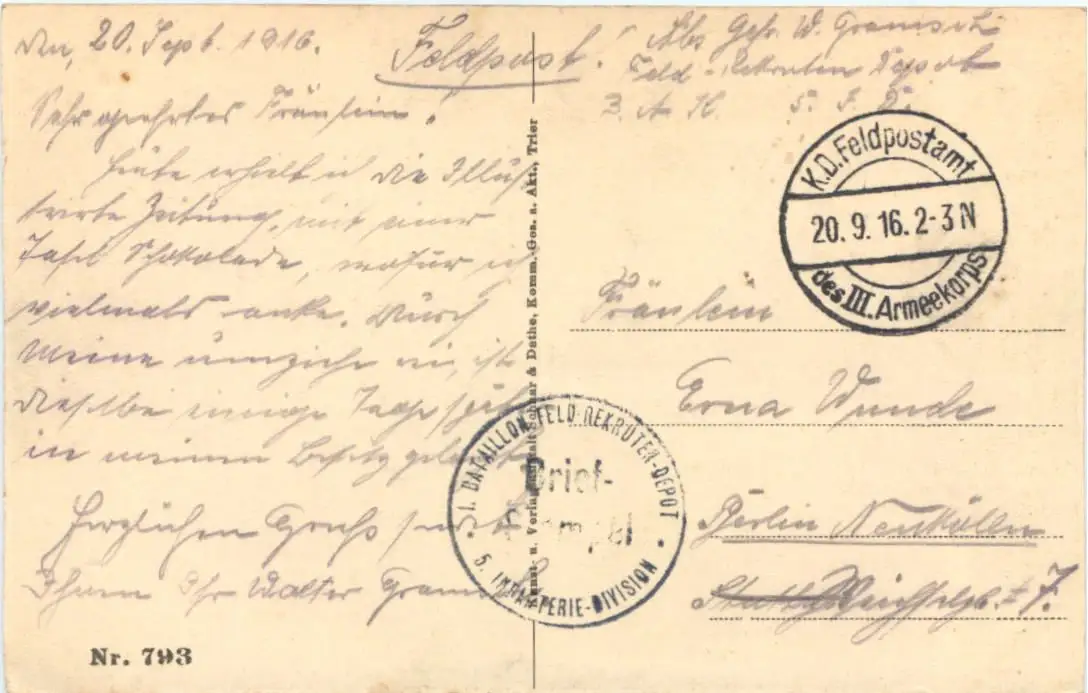 Den, 20. Sept. 1916.
Sehr geehrtes Fräulein!
Heute erhielt ich die Illus-
trierte Zeitung, mit einer
Tafel Schokolade, wofür ich
vielmals danke. Durch
meine umziehe rei, ist
dieselbe einige Tage spät
in meinen Besitz
Herzlichen Gruß sendet
Ihnen Ihr Walter
Nr. 793
Feldpost!
Abs. Gefr. W.
Feld-Rekruten Depot
3. A. K. 5. I. D.
K.D. Feldpostamt
20. 9. 16. 2-3 N
des III. Armeekorps
Fräulein
Erna Wunde
Berlin Neukölln
7.
I. BATAILLON FELD-REKRUTEN-DEPOT
Brief-
5. INFANTERIE-DIVISION
& Dathe, Komm.-Ges. a. Akt., Trier